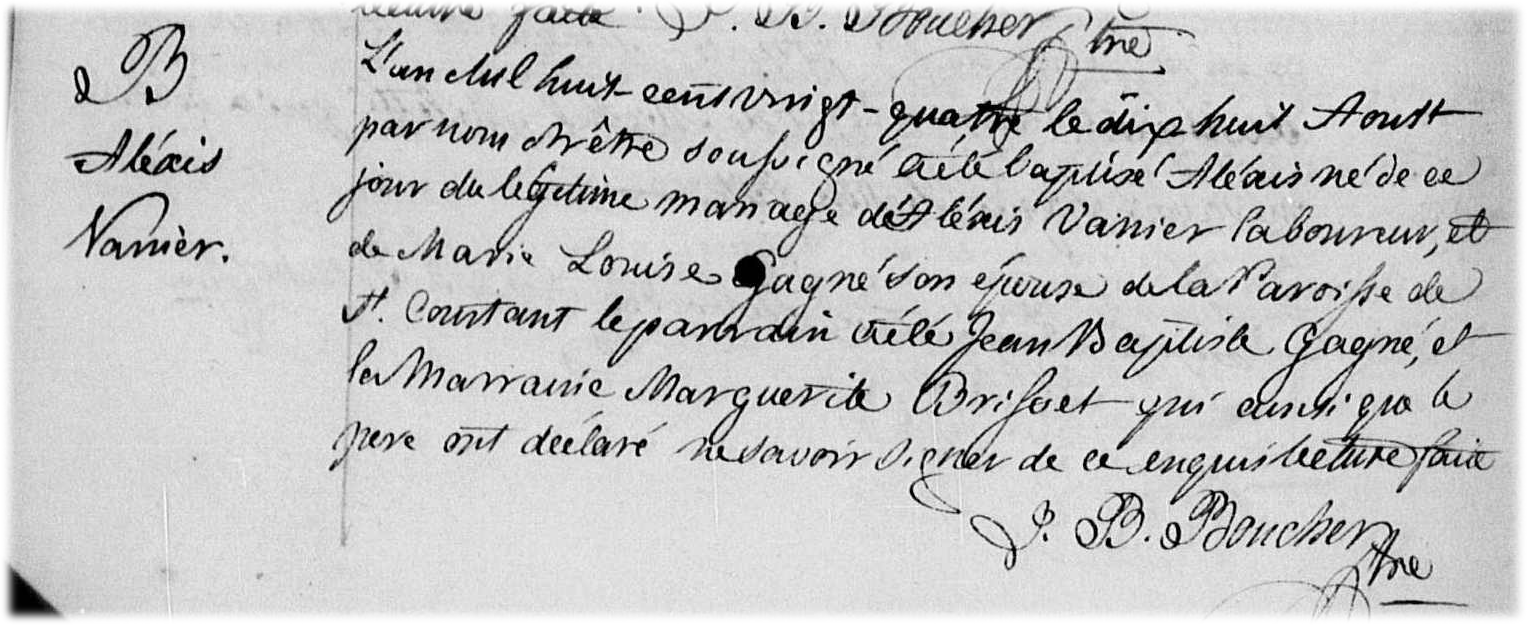 lecture faite J. B. Boucher Ptre
B
Aléxis
Vanier.
L'an Mil huit-cent vingt-quatre le dix huit Aoust
par nous Prêtre soussigné a été baptisé Aléxis né de ce
jour du légitime mariage de Aléxis Vanier laboureur, et
de Marie Louise Gagné son épouse de la Paroisse de
St. Constant le parrain a été Jean Baptiste Gagné, et
la Marraine Marguerite Brisset qui ainsi que le
pere ont déclaré ne savoir signer de ce enquis lecture faite
J. B. Boucher Ptre